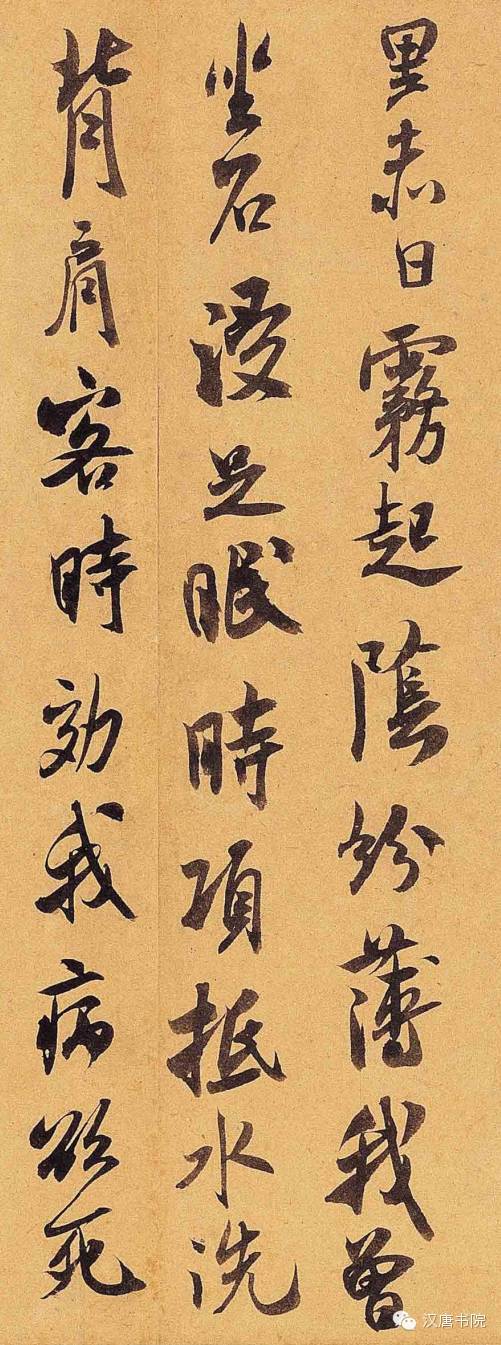 里赤日霧起隂紛薄我曾
坐石浸足眠時項抵水洗
背肩客時効我病欲死
汉唐书院